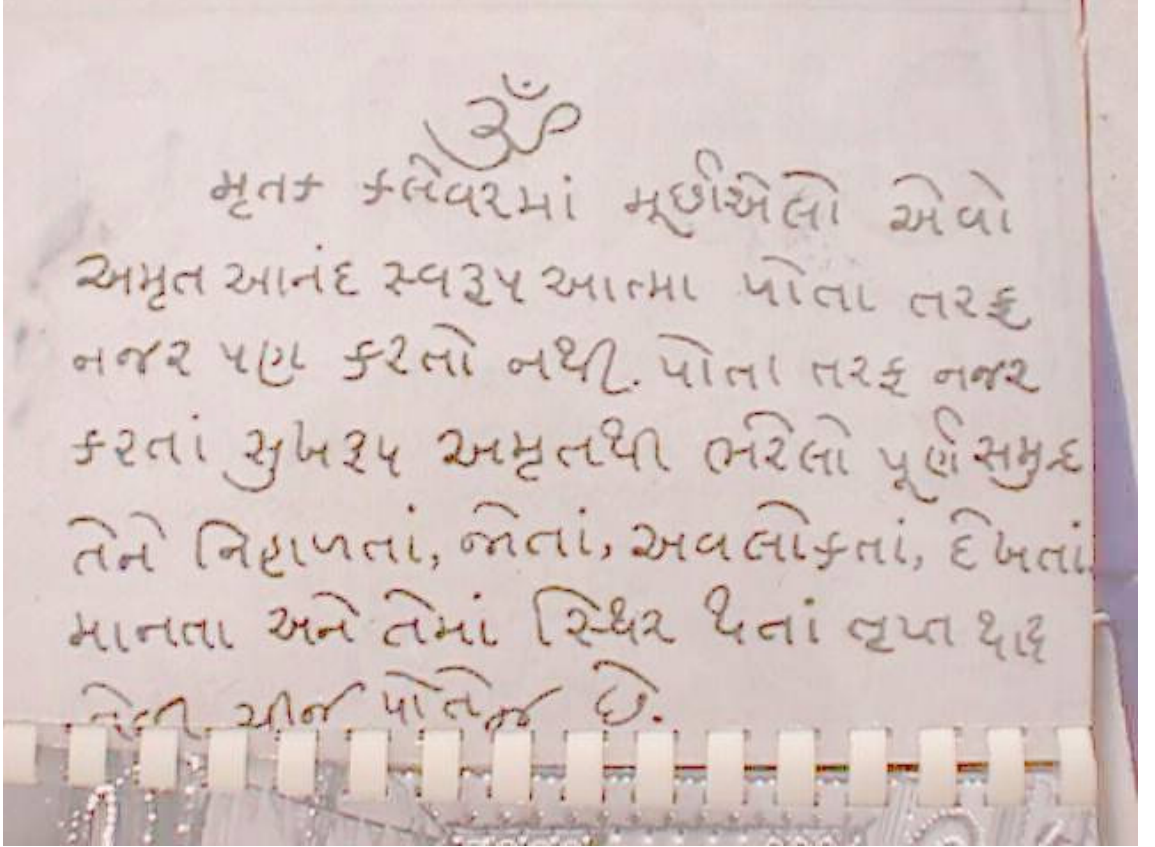 ૐ
મૃતક કલેવરમાં મૂર્છાએલો એવો
અમૃત આનંદ સ્વરૂપ આત્મા પોતા તરફ
નજર પણ કરતો નથી. પોતા તરફ નજર
કરતાં સુખરૂપ અમૃતથી ભરેલો પૂર્ણ સમુદ્ર
તેને નિહાળતાં, જોતાં, અવલોકતાં, દેખતાં,
માનતા અને તેમાં સ્થિર થતાં તૃપ્ત થાય
તેવી ચીજ પોતેજ છે.